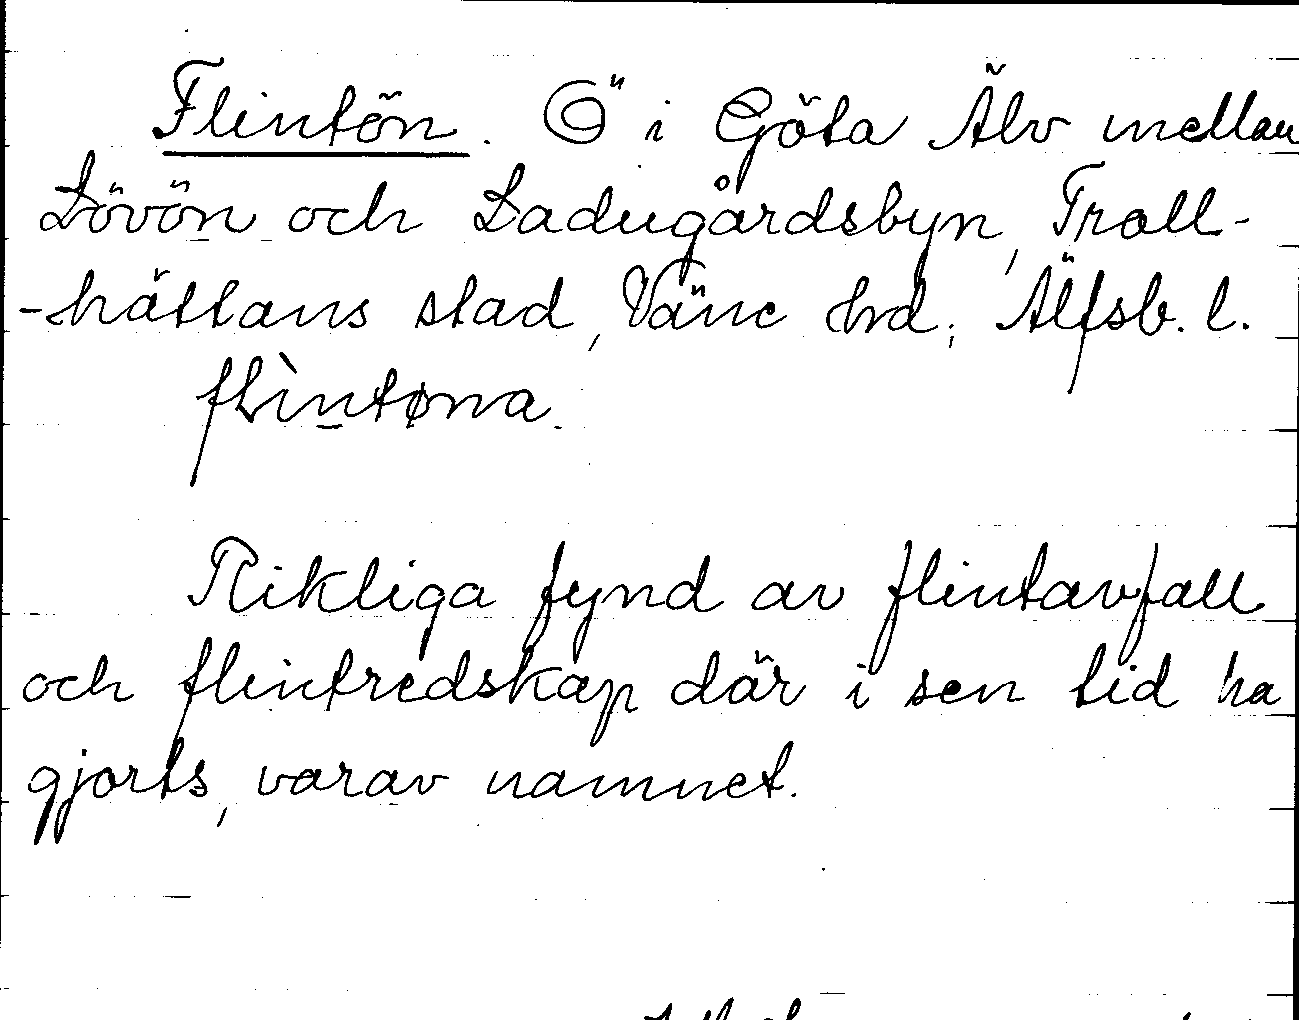 Flintön. Ö i Göta Älv mellan
Lövön och Ladugårdsbyn, Troll-
-hättans stad, Väne hd, Älfsb. l.
flìntøna.
Rikliga fynd av flintavfall
och flintredskap där i sen tid ha
gjorts, varav namnet.